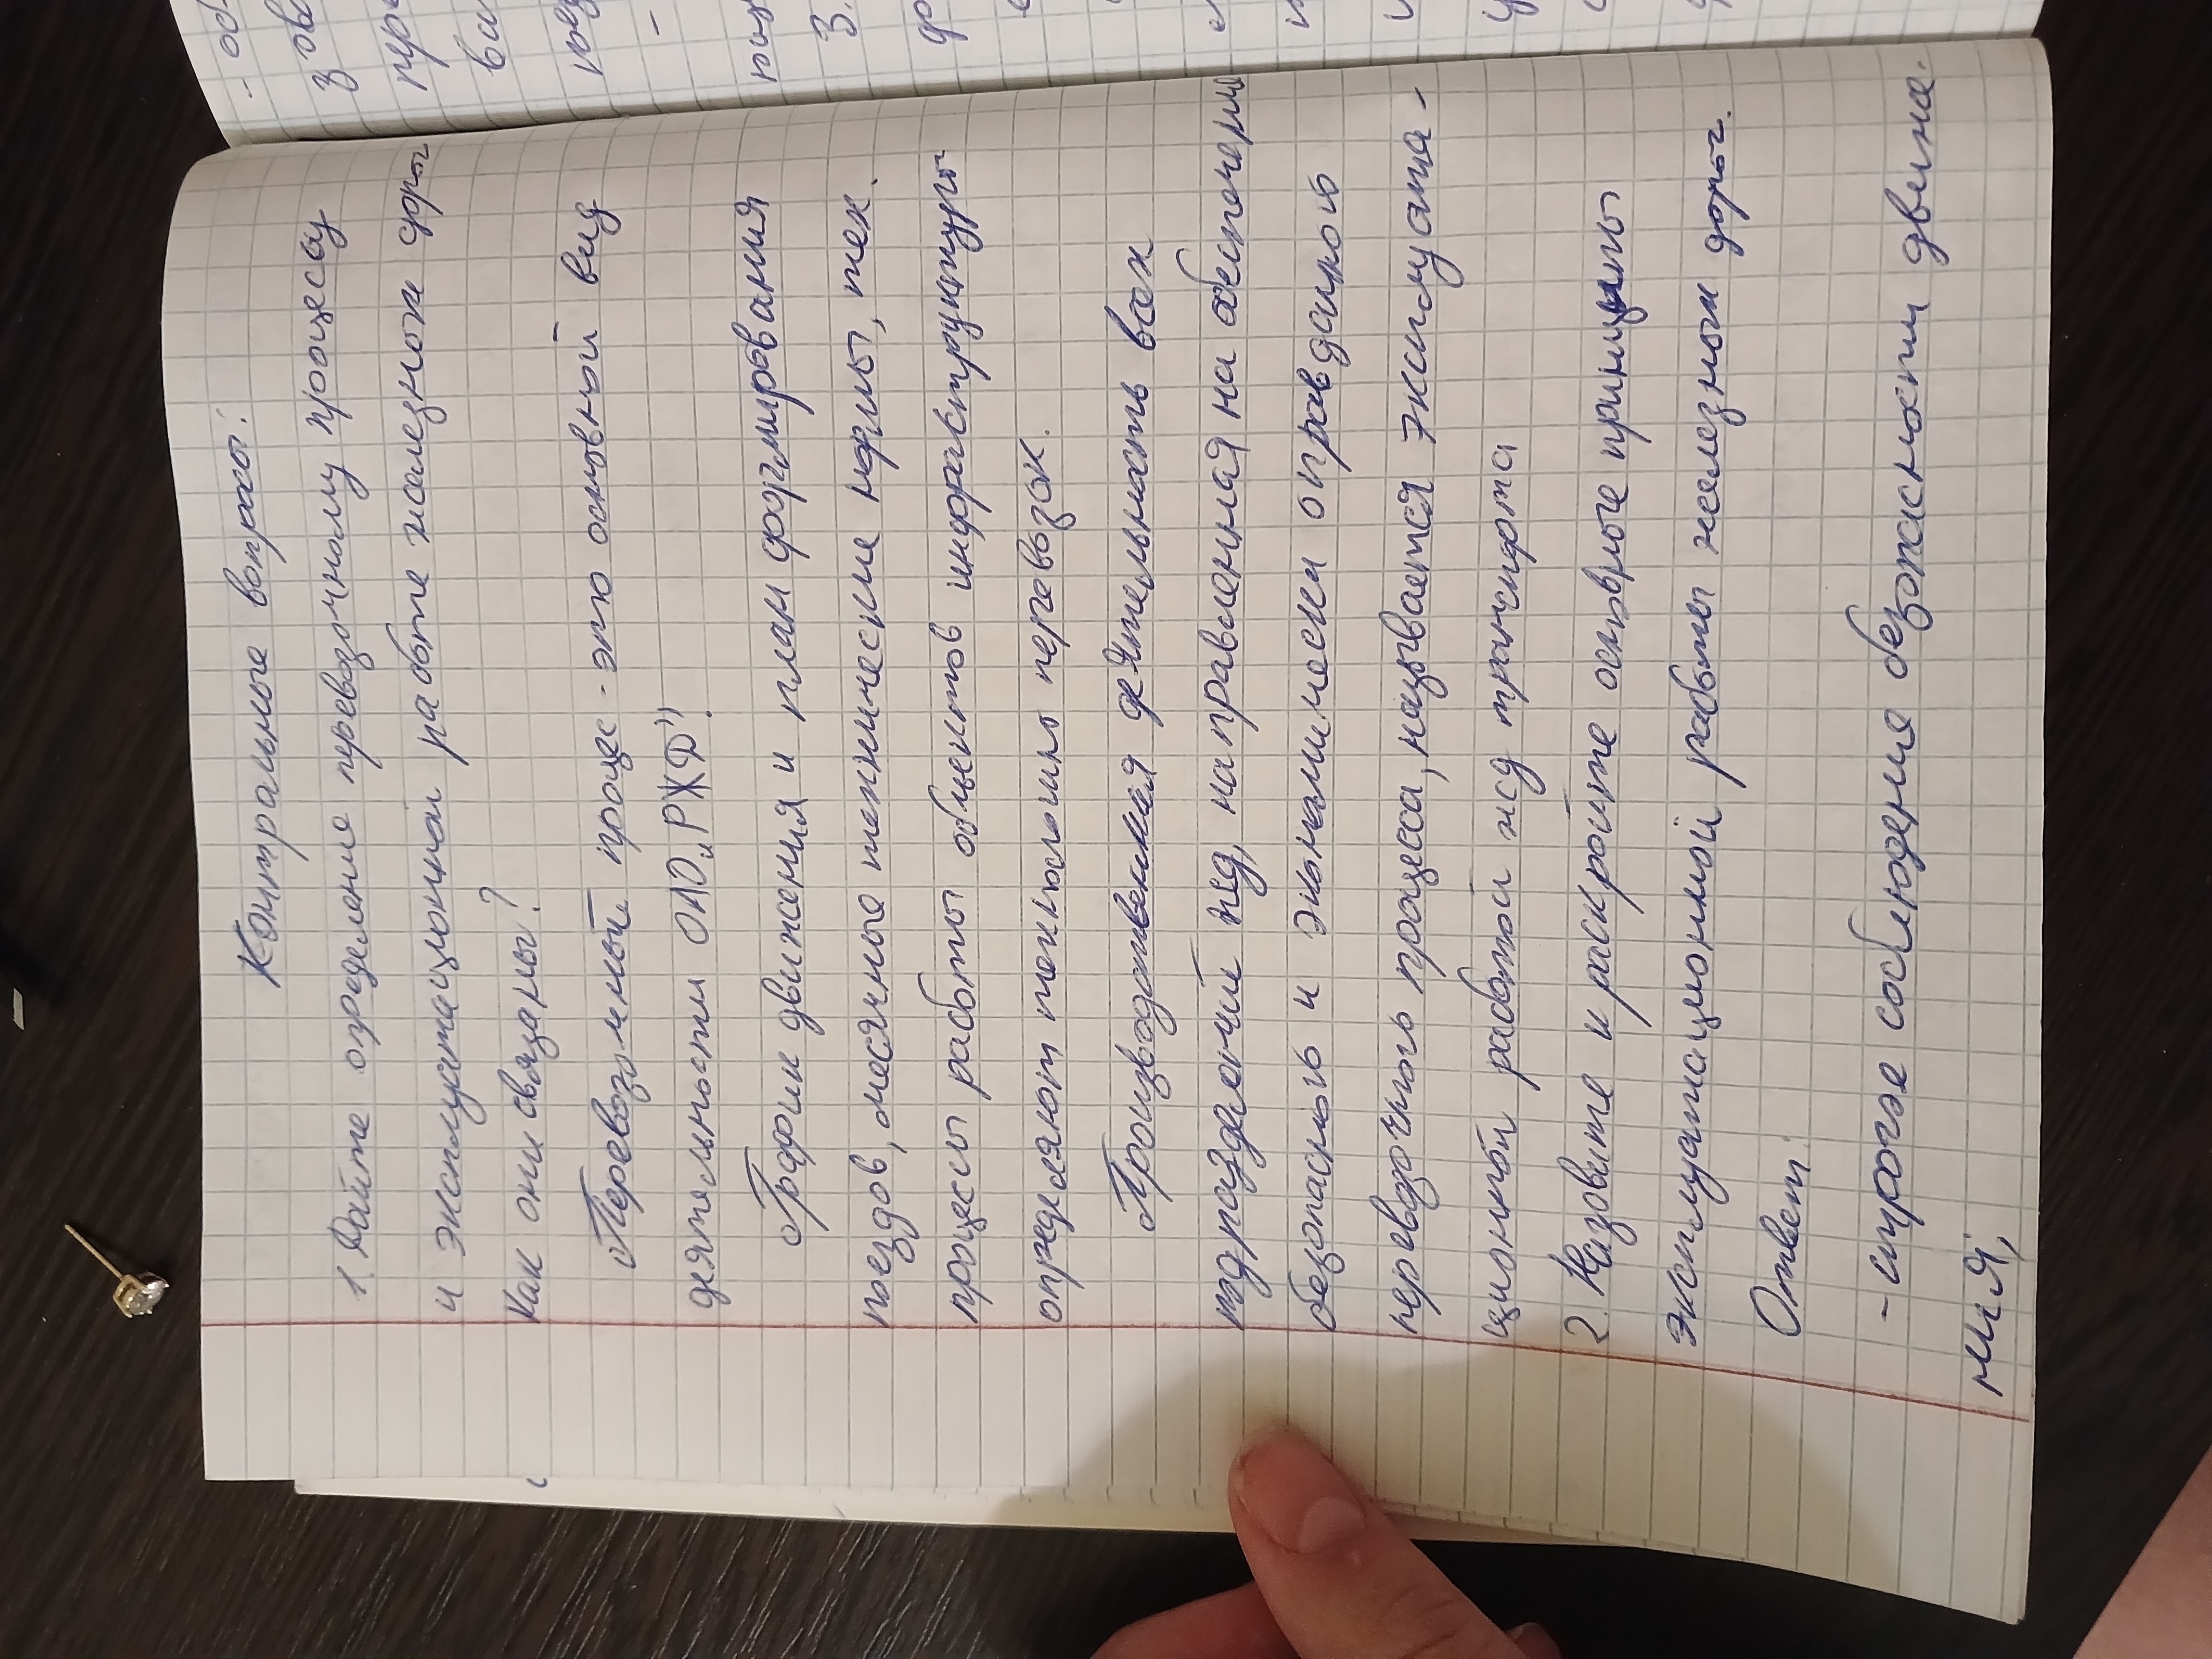 Контрольные вопросы:
1. Дайте определение перевозочному процессу
и эксплуатационной работе железной дорог
Как они связаны?
Перевозочный процес - это основный вид
деятельности ОАО „РЖД".
График движения и план формирования
поездов, месячные технические нормы, тех.
процессы работы объектов инфраструктуры
определяют технологию перевозок.
Производственная деятельность всех
подразделений жд, направленная на обеспечении
безопасного и экономически оправданого
перевозочного процесса, называется эксплуата-
ционной работой жд транспорта
2. Назовите и раскройте основные принципы
эксплуатационной работы железных дорог.
Ответ:
- строгое соблюдение безопасности движе.
ния,
- об
3.